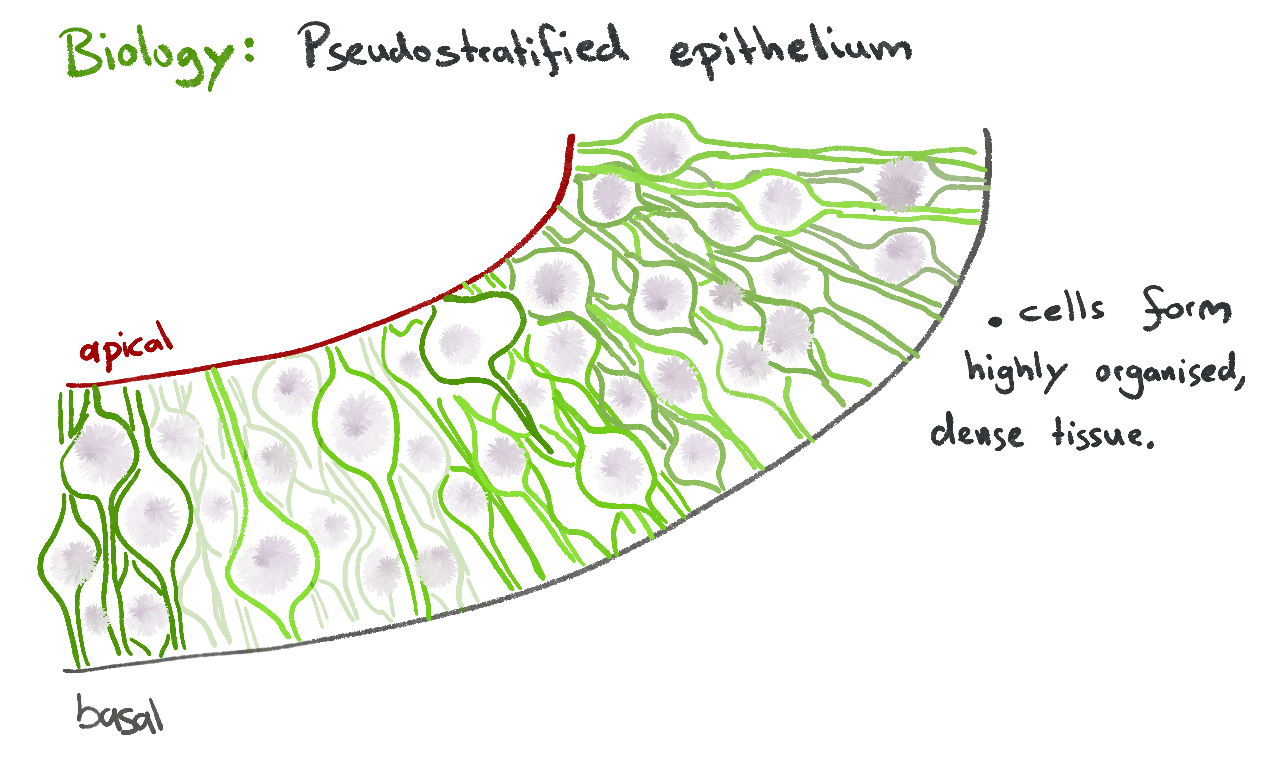 Biology: Pseudostratified epithelium
apical
• cells form
highly organised,
dense tissue.
basal